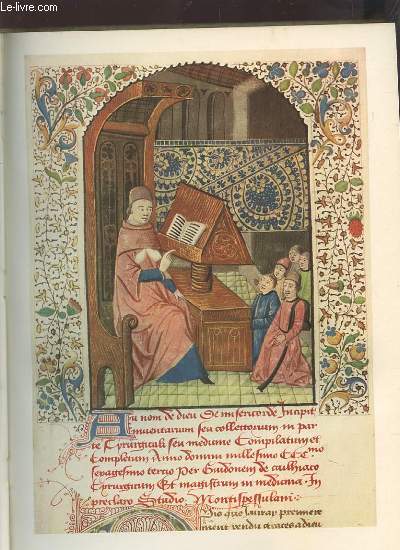 Le-livre.com
Au nom de dieu De misericorde Incipit
Inventarium seu collectorium in par
te Cyrurgicali seu medicine Compilatum et
Completum Anno domini millesimo CCC.mo
sexagesimo tertio Per Guidonem de caulhiaco
Cyrurgicum Et magistrum in medicina. In
preclaro Studio Montispessulani
premiere
rendu graces a dieu